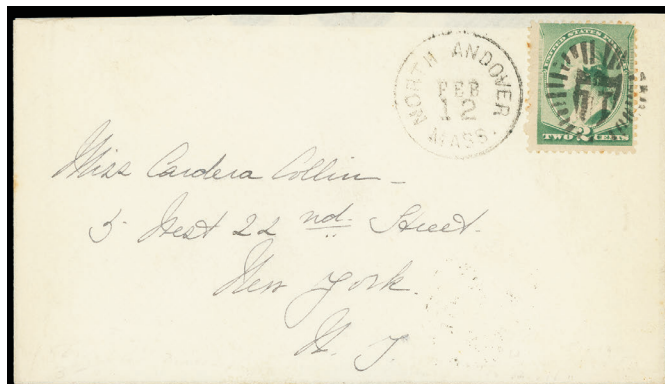 NORTH ANDOVER
FEB
12
MASS.
UNITED STATES
TWO 2 CENTS
Miss Cardera Collin
5 West 22 nd. Street.
New York.
N. Y.